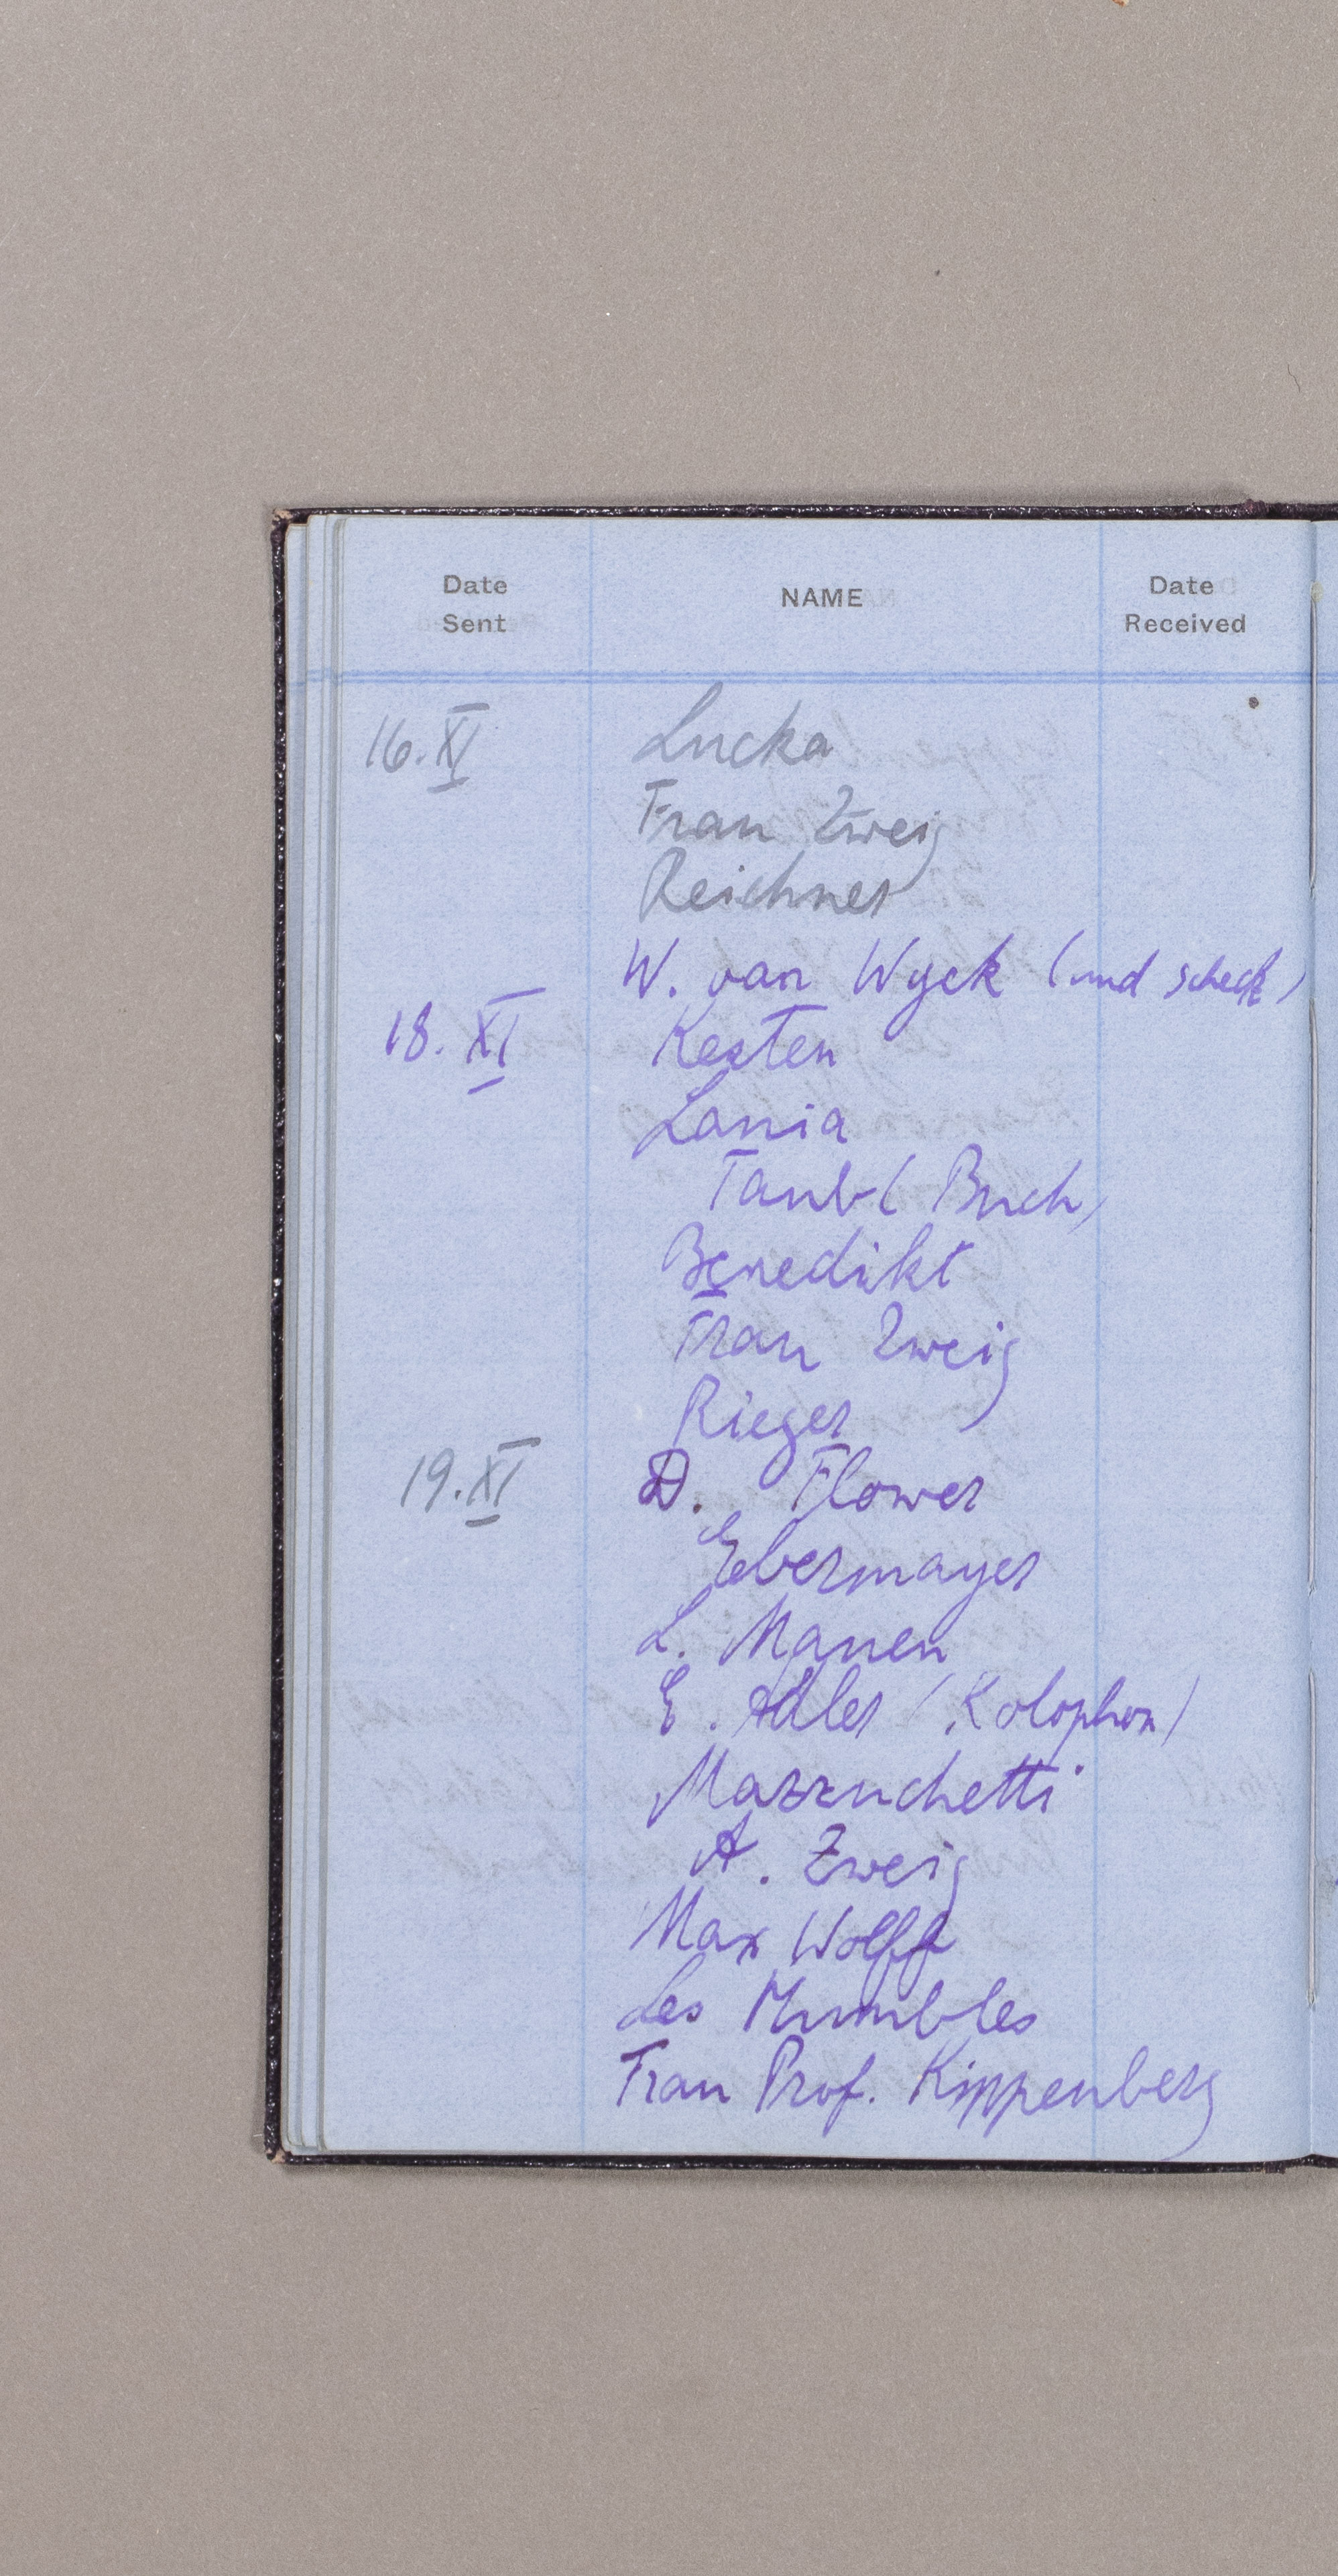 Date Sent NAME Date Received
16. XI Lucka
Frau Zweig
Reichner
W. van Wyck (und Scheck)
18. XI Kesten
Lania
Taub (Buch)
Benedikt
Frau Zweig
Rieger
19. XI D. Flower
Ebermayer
L. Manen
E. Adler (Kolophon)
Mazzuchetti
A. Zweig
Max Wolff
Les Mumbles
Frau Prof. Kippenberg